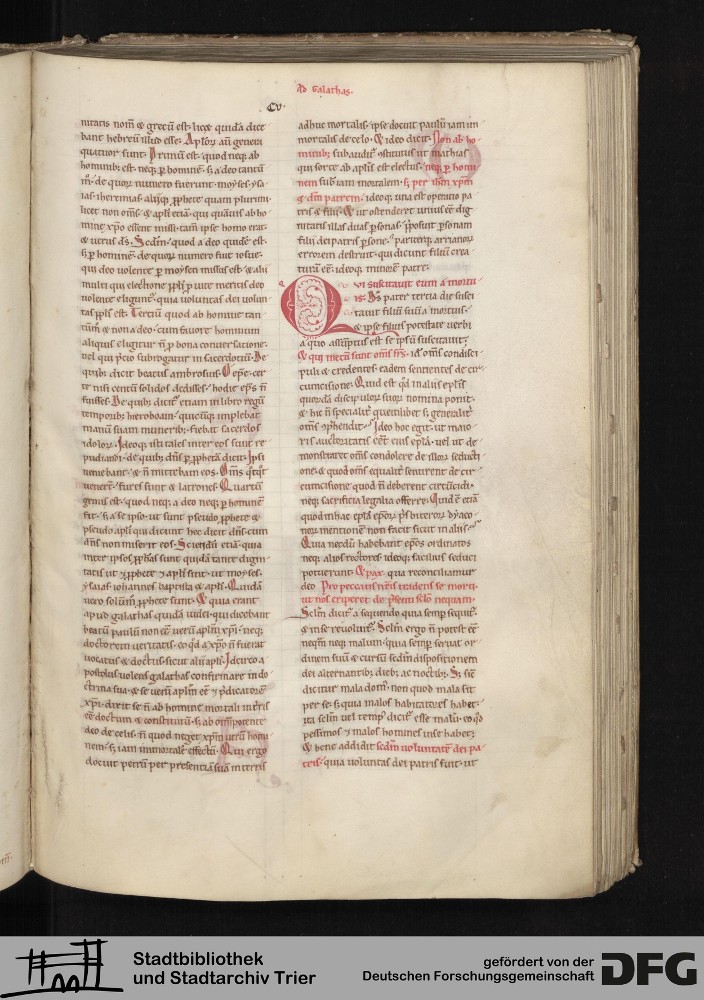 Ad Galathas.
CV.
nitatis nom̄ & grecū est. licet quidā dice
bant hebreū illud esse. Aplōr̄ aūt genera
quatuor sunt. Primū est. quod neq; ab
hominib; est. neq; p hominē. s; a deo tantū
licet non om̄s. & apl̄i etiā. qui quāuis ab ho
mine xp̄o essent missi. tam̄ ipse homo erat.
& uerus d̄s. Sc̄dm̄. quod a deo quidē est.
s; p hominē. de quor̄ numero fuit iosue.
qui deo uolente p moysen missus est. & alii
uolente eligunt̄. quia uoluntas dei uolun
tas ppl̄i est. Tertiū quod ab homine tan
tūm̄ & non a deo. cum fauore hominum
aliquis eligitur. n̄ p bona conuersatione.
uel qui p̄cio subrogatur in sacerdotiū. De
quib; dicit beatus ambrosius. O ep̄e. cer
te nisi centū solidos dedisses. hodie ep̄s n̄
fuisses. De quib; dicit̄ etiam in libro regū
temporib; hieroboam. quicūq; implebat
manū suam munerib;. fiebat sacerdos
idolor̄. Ideoq; isti tales inter eos sunt re
pudiandi. de quib; dn̄s p pphetā dicit. Ipsi
ueniebant. & n̄ mittebam eos. Om̄s qͥtqͦt
uenerr̄. fures sunt & latrones. Quartū
genus est. quod neq; a deo neq; p hominē
fit. s; a se ipso. ut sunt pseudo pphete &
pseudo apl̄i qui dicunt hec dicit dn̄s. cum
dn̄s non miserit eos. Sciendū etiā. quia
inter ipsos pphetas sunt quidā tante digni
tatis ut & pphete & apl̄i sint. ut moyses.
ysaias. iohannes baptista & apl̄i. Quidā
uero solūm̄ pphete sunt. Et quia erant
apud galathas quidā iudei. qui dicebant
beatū paulū non eē uerū apl̄m xp̄i. neq;
doctorem ueritatis. eo qd̄ a xp̄o n̄ fuerat
uocatus & doctus. sicut alii apl̄i. Idcirco a
postolus uolens galathas confirmare in do
ctrina sua. & se uerū apl̄m eē & p̄dicatorē
xp̄i. dixit se n̄ ab homine mortali in tr̄is
eē doctum & constitutū. s; ab omīpotente
deo de celis. n̄ quod neget xp̄m uerū homi
nem. s; iam immortalē effectū. Qui ergo
docuit petrū per presentiā suā in terris
adhuc mortalis. ipse docuit paulū iam in
mortalis de celo. & ideo dicit. Non ab ho
minib; subauditr̄ ↄstitutus ut mathias
qui sorte ab apl̄is est electus. neq; p homi
nem sub iam mortalem. s; per ihm̄ xp̄m
& dm̄ patrem. ideoq; una est operatio pa
tris & filii. Et ut ostenderet unius eē dig
nitatis illas duas psonas. p̄posuit psonam
filii dei patris psone. pariterq; arrianor̄
errorem destruit. qui dicunt filiū crea
turā eē. ideoq; minorē patre.
Qui suscitauit eum a mortu
is. Ds pater tercia die susci
tauit filiū suū a mortuis.
& ipse filius potestate uerbi
a quo assūptus est se ipsū suscitauit.
Et qui mecū sunt om̄s fr̄s. id om̄s condisci
puli & credentes. eadem sentientes de cir
cumcisione. Quid est qd̄ in aliis epl̄is
quordā discipulor̄ suor̄ nomina ponit.
& hic n̄ specialit̄ quemlibet s; generalit̄
om̄s ↄphendit. Ideo hoc egit. ut maio
ris auctoritatis eēt eius epl̄a. uel ut de
monstraret om̄s condolere de illor̄ seducti
one. & quod om̄s equalit̄ sentirent de cir
cumcisione quod n̄ deberent circūcidi.
neq; sacrificia legalia offerre. Quid ē etiā
quod in hac epl̄a ep̄or̄ p̄sbiteror̄ dyaco
nor̄ mentionē non facit sicut in aliis.
Quia necdū habebant ep̄os ordinatos
neq; alios rectores. ideoq; facilius seduci
potuerunt. Et pax. qua reconciliamur
deo. Pro peccatis nr̄is tradens se morti.
ut nos eriperet de p̄senti sc̄lo nequam.
Sc̄lm̄ dicit̄ a sequendo quia semp sequit̄.
& in se reuoluit̄. Sc̄lm̄ ergo n̄ potest eē
neq; malum. quia semp seruat or
dinem suū & cursū sc̄dm dispositionem
dei alternantib; dieb; ac noctib;. S; sic
dicitur mala dom̄. non quod mala sit
per se. s; quia malos habitatores habet.
ita sc̄lm uel temp; dicit̄ esse malū. eo qd̄
pessimos & malos homines in se habet.
Et bene addidit sc̄dm uoluntatē dei pa
tris. quia uoluntas dei patris fuit. ut
Stadtbibliothek
und Stadtarchiv Trier
gefördert von der
Deutschen Forschungsgemeinschaft
DFG